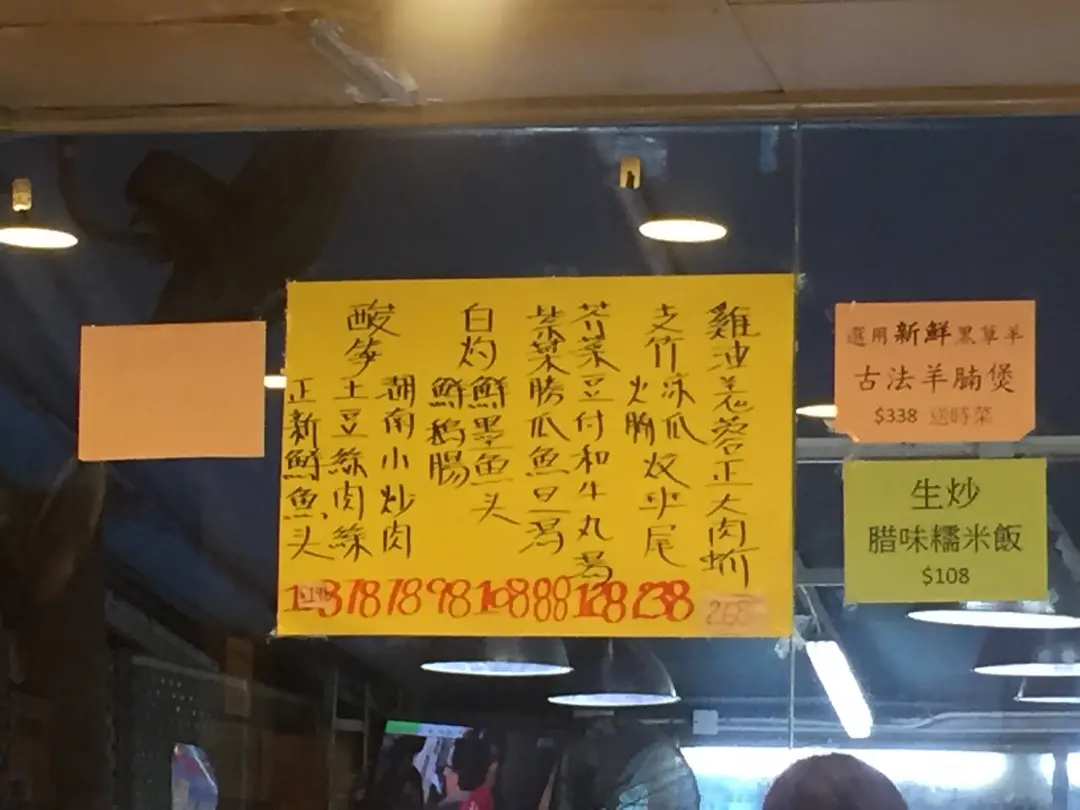 雞油姜蓉正大肉蚧
支竹
凉瓜
火腩
炆
尾
238
芥菜豆付和牛丸湯
128
紫菜勝瓜魚旦湯
88
白灼
鮮墨魚头
108
鮮鵝腸
98
湖南小炒肉
78
酸笋
土豆絲肉絲
78
正新鮮魚头
選用新鮮黑草羊
古法羊腩煲
$338 送時菜
生炒
腊味糯米飯
$108